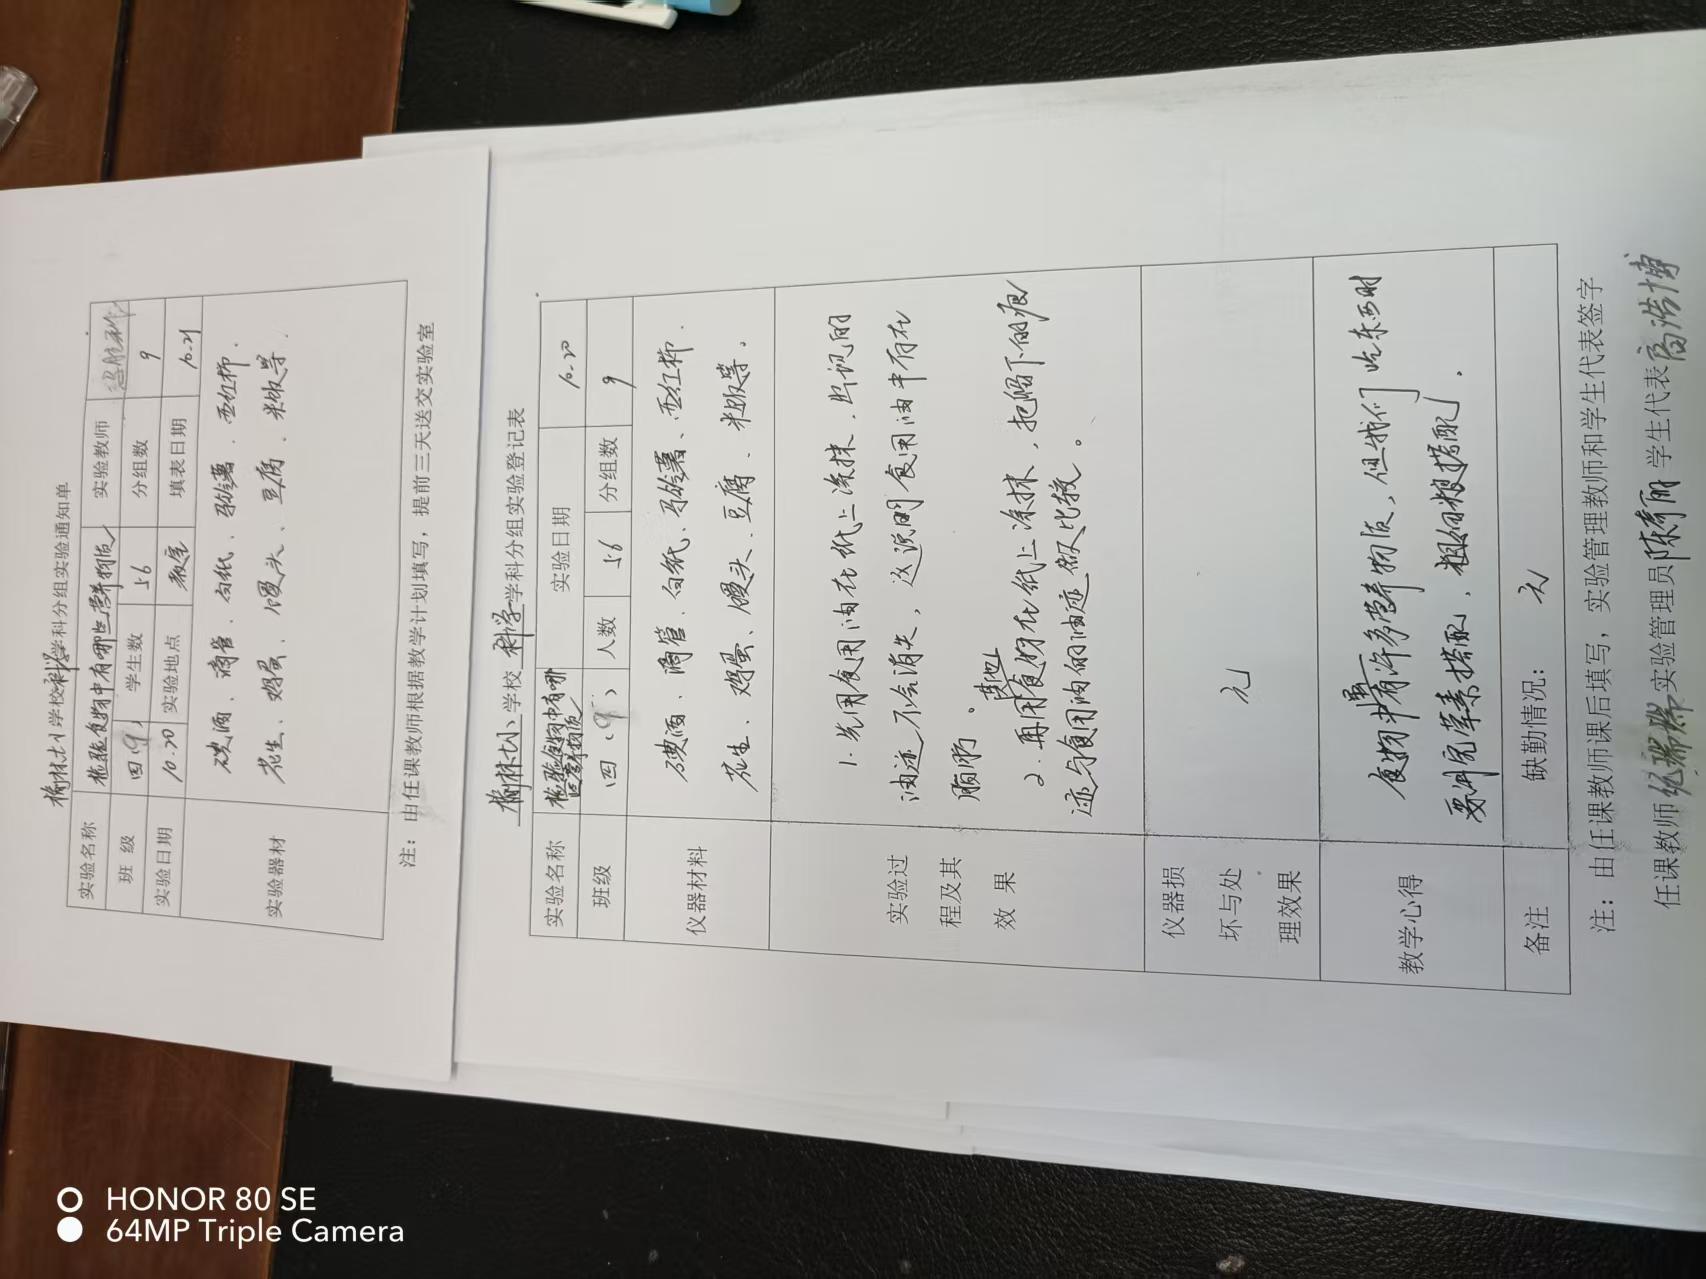 榆林七小学校科学学科分组实验通知单
实验名称 检验食物中有哪些营养物质 实验教师
班 级 四(9) 学生数 56 分组数 9
实验日期 10.20 实验地点 教室 填表日期 10.21
实验器材
碘酒、滴管、白纸、马铃薯、西红柿、
花生、鸡蛋、馒头、豆腐、米饭等.
注：由任课教师根据教学计划填写，提前三天送交实验室
榆林七小学校 科学学科分组实验登记表
实验名称 检验食物中有哪些营养物质 实验日期 10.20
班级 四(9) 人数 56 分组数 9
仪器材料
碘酒、滴管、白纸、马铃薯、西红柿.
花生、鸡蛋、馒头、豆腐、米饭等。
实验过
程及其
效 果
1.先用食用油在纸上涂抹.出现的
油迹不会消失，这说明食用油中存在
脂肪.
2.再用其他食物在纸上涂抹，把留下的痕
迹与食用油的油迹做比较。
仪器损
坏与处
理效果
无
教学心得
食物中有许多营养物质，但我们吃东西时
要讲究荤素搭配、粗细粮搭配.
备注 缺勤情况：无
注：由任课教师课后填写，实验管理教师和学生代表签字
任课教师 实验管理员 陈育丽 学生代表 高浩博
HONOR 80 SE
64MP Triple Camera